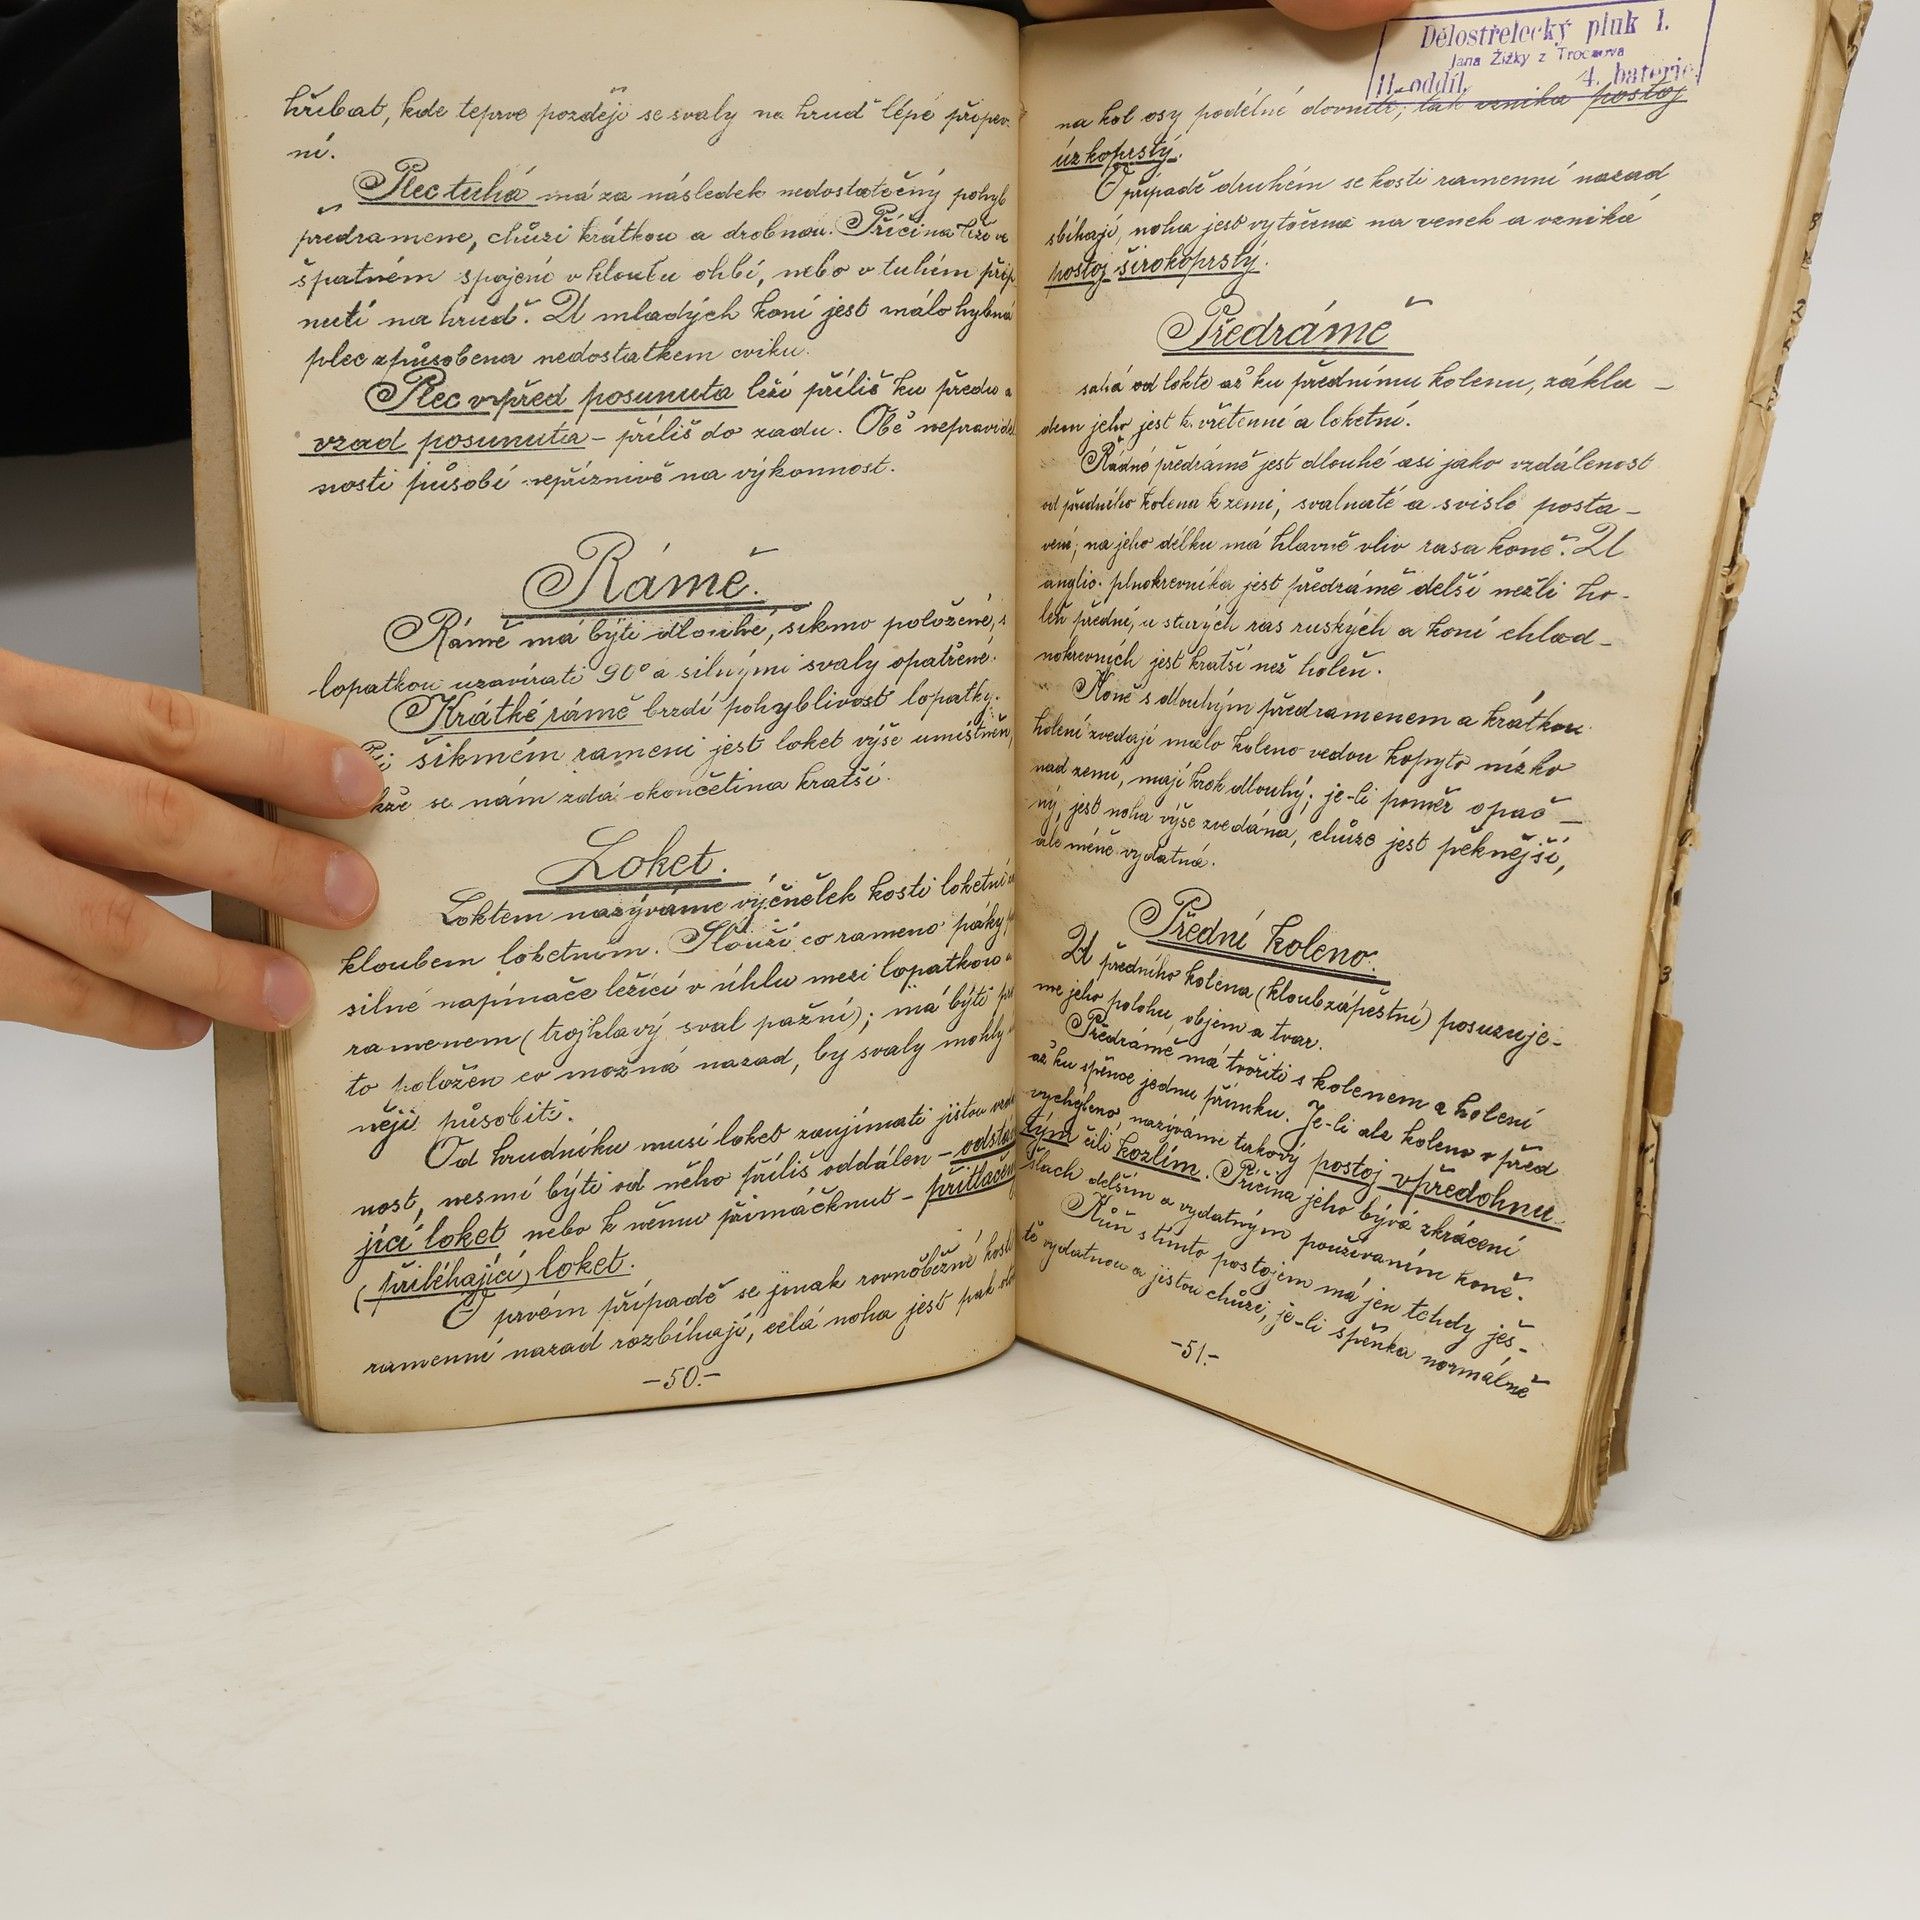 hříbat, kde teprve později se svaly na hruď lépe připev-
ní.
Plec tuhá má za následek nedostatečný pohyb
předramene, chůzi krátkou a drobnou. Příčina leží ve
špatném spojení v kloubu ohbí, nebo v tuhém přip
nutí na hruď. U mladých koní jest málo hybná
plec způsobena nedostatkem cviku.
Plec vpřed posunuta leží příliš ku předu a
vzad posunuta - příliš do zadu. Obě nepravidel
nosti působí nepříznivě na výkonnost.
Rámě.
Rámě má býti dlouhé, šikmo položené, s
lopatkou uzavírati 90° a silnými svaly opatřené.
Krátké rámě brzdí pohyblivost lopatky.
šikmém rameni jest loket výše umístněn,
kže se nám zdá okončetina kratší.
Loket.
Loktem nazýváme výčnělek kosti loketní
kloubem loketním. Slouží co rameno páky
silné napínače ležící v úhlu mezi lopatkou a
ramenem (trojhlavý sval pažní); má býti
to položen co možná nazad, by svaly mohly
něji působiti.
Od hrudníku musí loket zaujímati jistou
nost, nesmí býti od něho příliš oddálen - odstáv
jící loket nebo k němu přimáčknut - přitlačen
(přiléhající) loket.
V prvém případě se jinak rovnoběžné kosti
ramenní nazad rozbíhají, celá noha jest pak
-50.-
Dělostřelecký pluk 1.
Jana Žižky z Trocnova
II. oddíl, 4. baterie
na kol osy podélné dovnitř, tak vzniká postoj
úzkoprstý.
V případě druhém se kosti ramenní nazad
sbíhají, noha jest vytočena na venek a vzniká
postoj širokoprstý.
Předrámě
sahá od lokte až ku přednímu kolenu, zákla-
dem jeho jest k. vřetenní a loketní.
Řádné předrámě jest dlouhé asi jako vzdálenost
od předního kolena k zemi, svalnaté a svisle posta-
vení; na jeho délku má hlavně vliv rasa koně. U
anglic. plnokrevníka jest předrámě delší nežli ho-
leň přední, u starých ras ruských a koní chlad-
nokrevných jest kratší než holeň.
Koně s dlouhým předramenem a krátkou
holení zvedají málo koleno vedou kopyto nízko
nad zemí, mají krok dlouhý; je-li poměr opač-
ný, jest noha výše zvedána, chůze jest pěknější,
ale méně vydatná.
Přední koleno.
U předního kolena (kloub zápěstní) posuzuje-
me jeho polohu, objem a tvar.
Předrámě má tvořiti s kolenem a holení
až ku spěnce jednu přímku. Je-li ale koleno v před
vychýleno, nazýváme takový postoj vpředohnu
tým čili kozlím. Příčina jeho bývá zkrácení
šlach delším a vydatným používaním koně.
Kůň s tímto postojem má jen tehdy ješ-
tě vydatnou a jistou chůzi, je-li spěnka normálně
-51.-